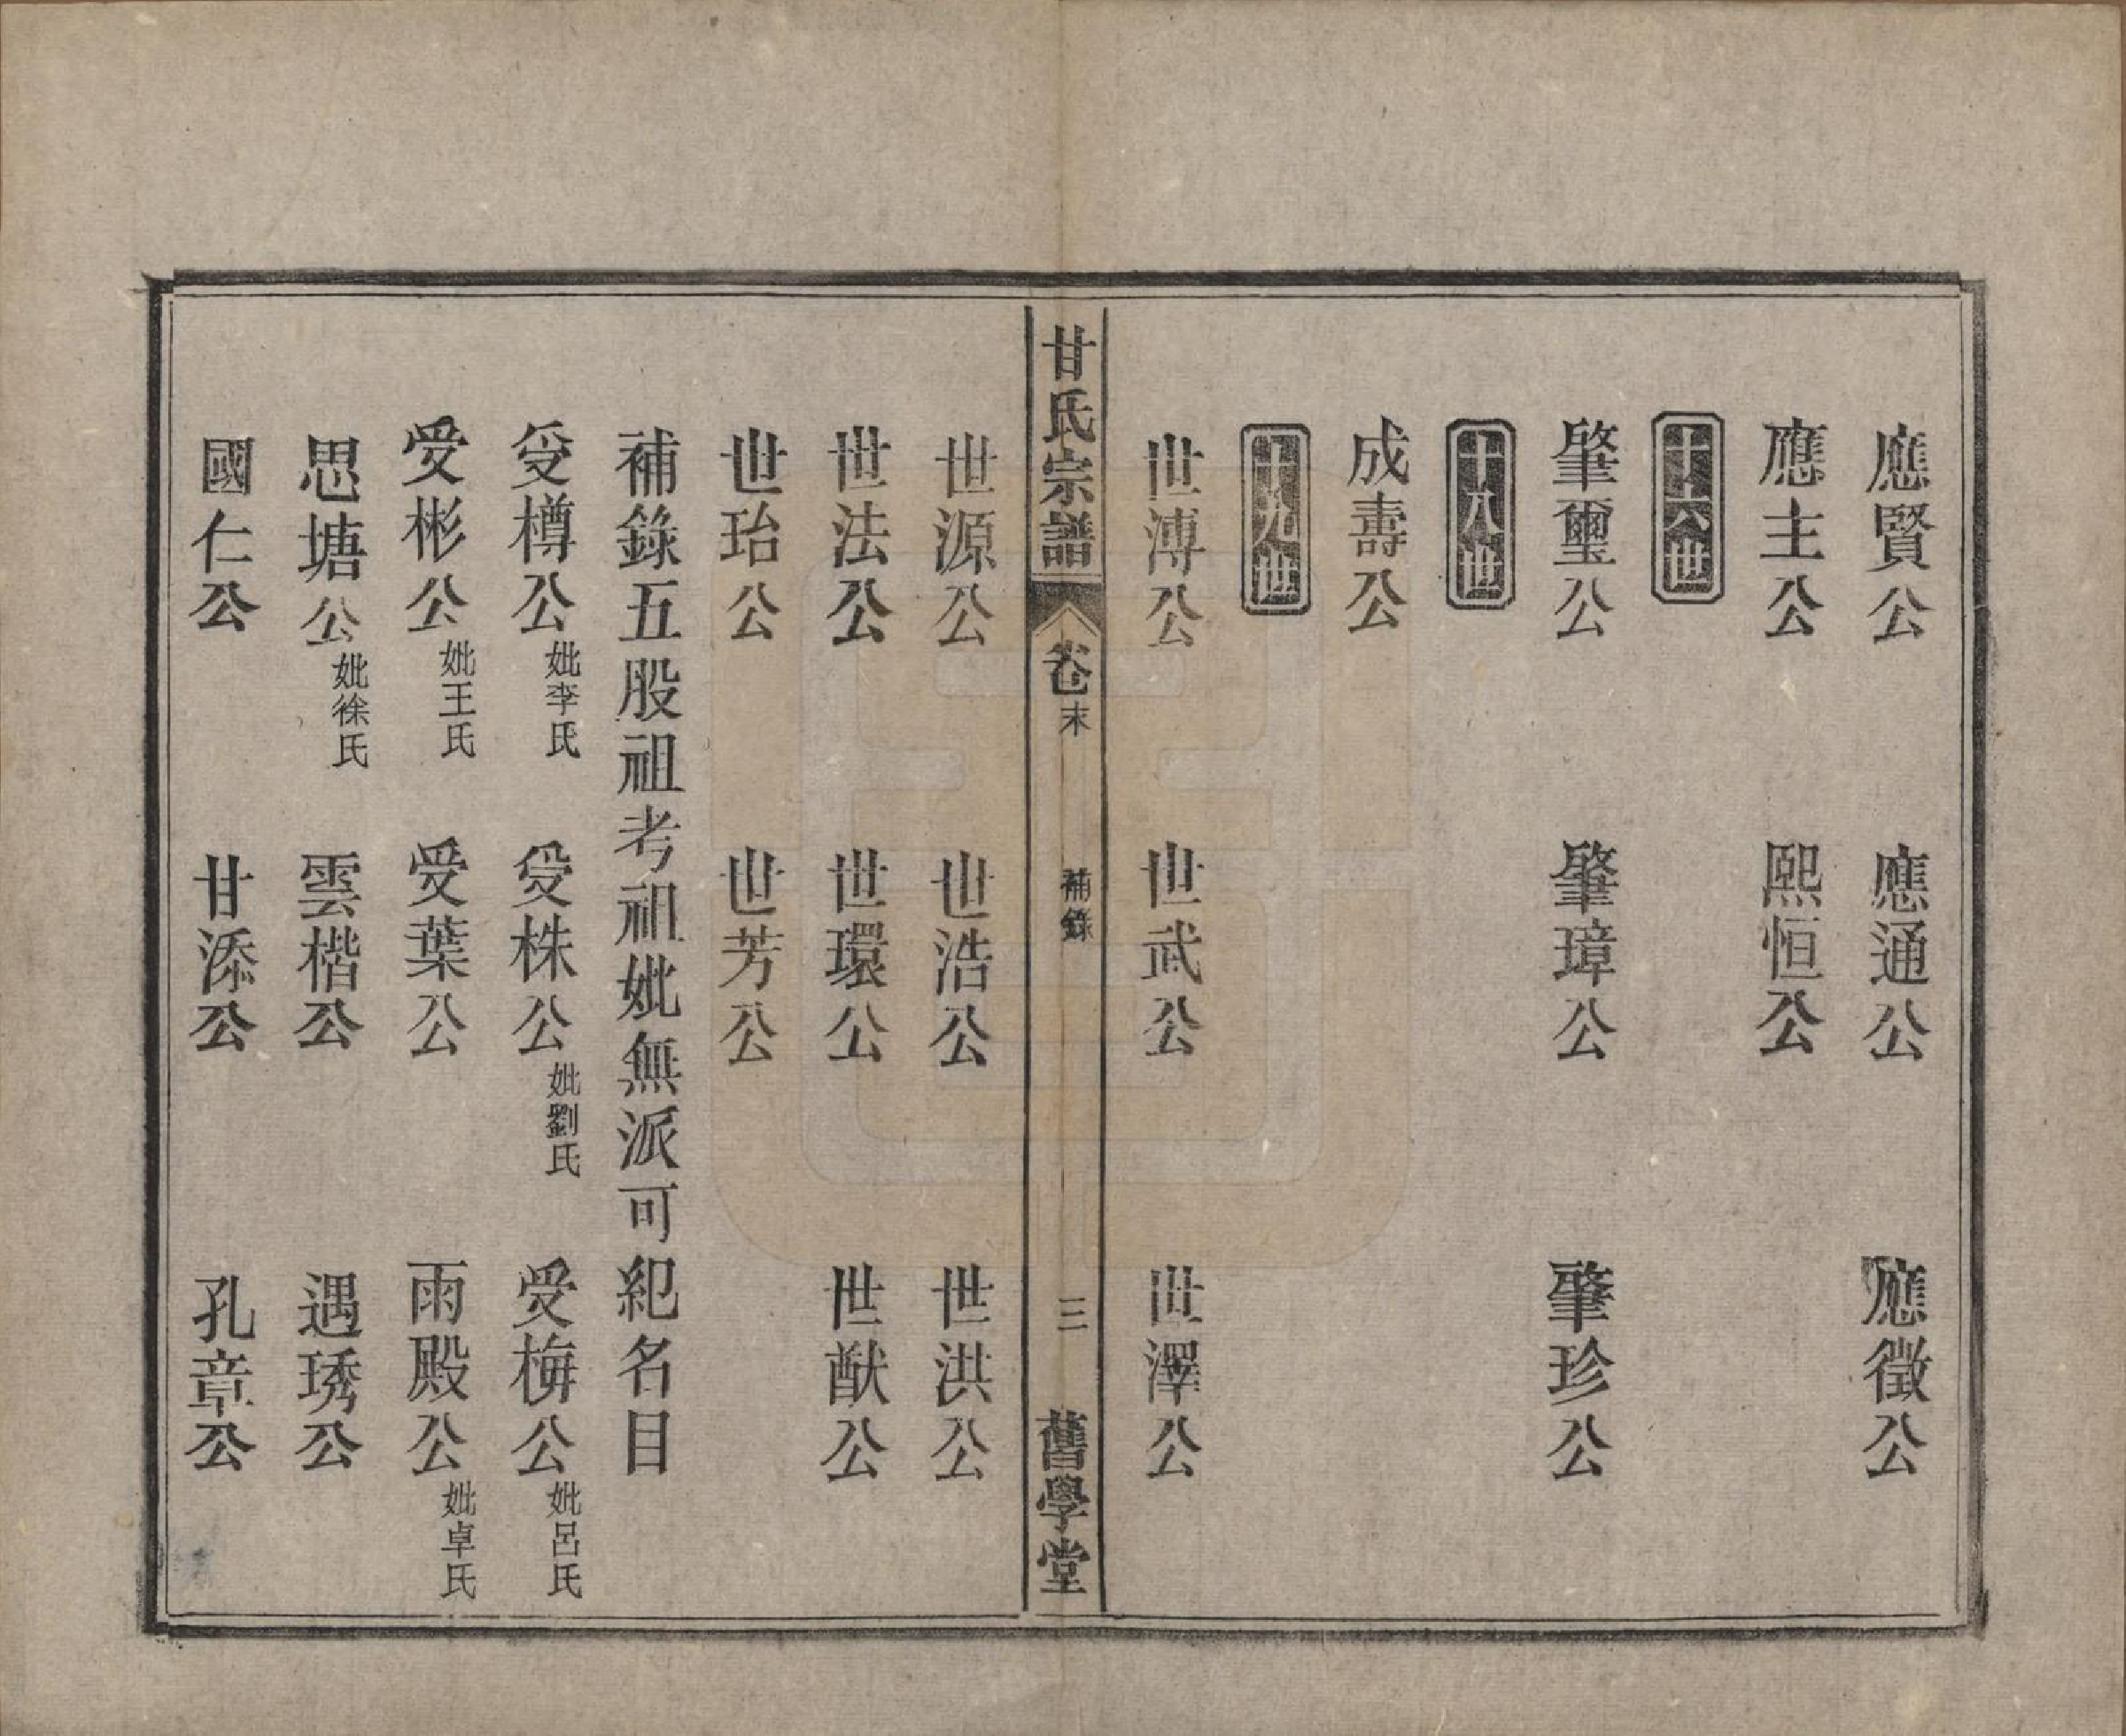 應賢公 應通公 應徵公
應主公 熙恒公
十六世
肇璽公 肇璋公 肇珍公
十八世
成壽公
十九世
世溥公 世武公 世澤公
甘氏宗譜 卷末 補錄 三 舊學堂
世源公 世浩公 世洪公
世法公 世環公 世猷公
世珆公 世芳公
補錄五股祖考祖妣無派可紀名目
受樽公妣李氏 受株公妣劉氏 受梅公妣呂氏
受彬公妣王氏 受葉公 雨殿公妣卓氏
思塘公妣徐氏 雲楷公 遇琇公
國仁公 甘添公 孔章公